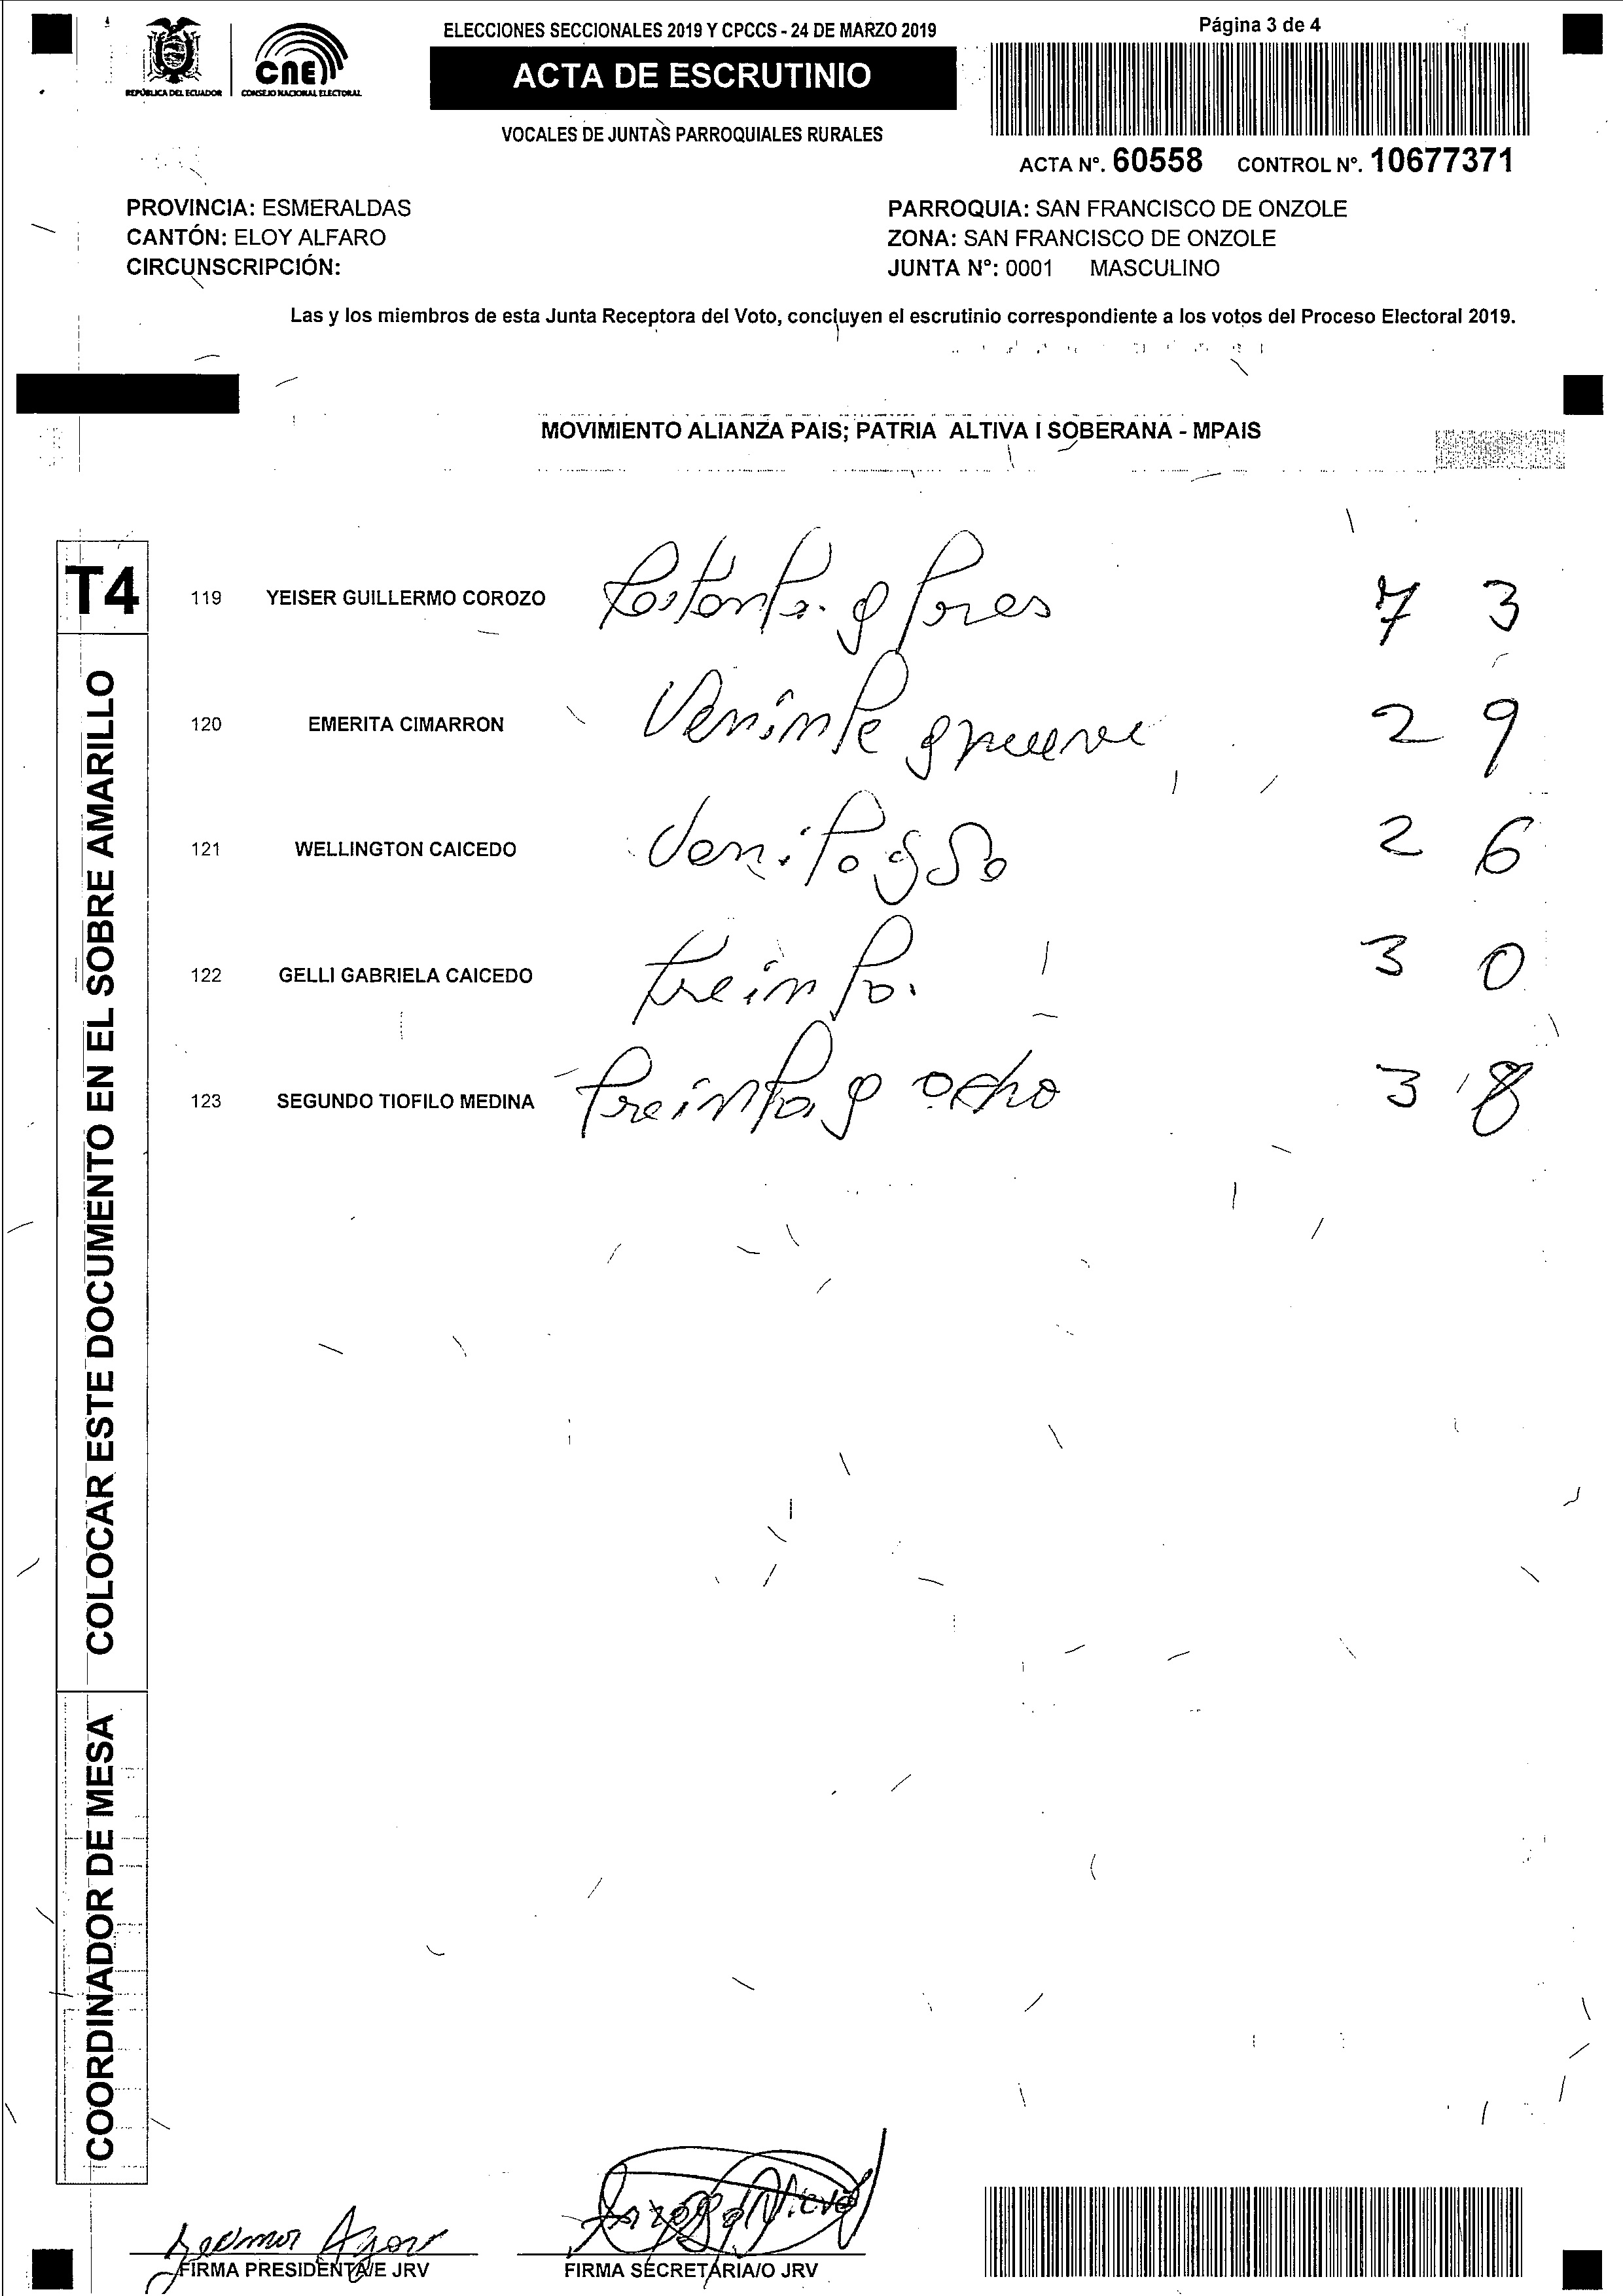 ELECCIONES SECCIONALES 2019 Y CPCCS - 24 DE MARZO 2019
Página 3 de 4
REPÚBLICA DEL ECUADOR
CNE
CONSEJO NACIONAL ELECTORAL
ACTA DE ESCRUTINIO
VOCALES DE JUNTAS PARROQUIALES RURALES
ACTA N°. 60558 CONTROL N°. 10677371
PROVINCIA: ESMERALDAS
CANTÓN: ELOY ALFARO
CIRCUNSCRIPCIÓN:
PARROQUIA: SAN FRANCISCO DE ONZOLE
ZONA: SAN FRANCISCO DE ONZOLE
JUNTA N°: 0001 MASCULINO
Las y los miembros de esta Junta Receptora del Voto, concluyen el escrutinio correspondiente a los votos del Proceso Electoral 2019.
MOVIMIENTO ALIANZA PAIS; PATRIA ALTIVA I SOBERANA - MPAIS
T4
COLOCAR ESTE DOCUMENTO EN EL SOBRE AMARILLO
COORDINADOR DE MESA
119 YEISER GUILLERMO COROZO 7 3
120 EMERITA CIMARRON 2 9
121 WELLINGTON CAICEDO 2 6
122 GELLI GABRIELA CAICEDO treinta 3 0
123 SEGUNDO TIOFILO MEDINA treinta y ocho 3 8
FIRMA PRESIDENTA/E JRV
FIRMA SECRETARIA/O JRV